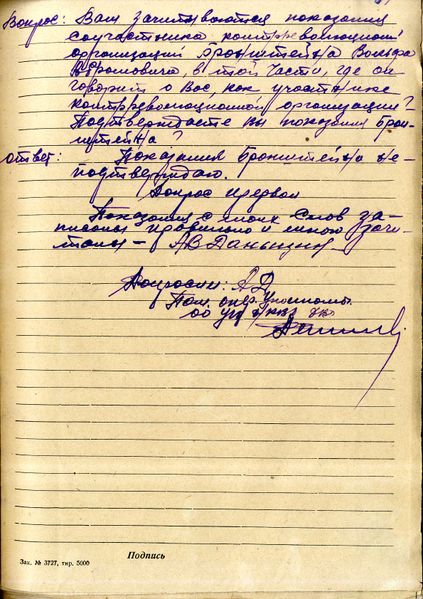 Вопрос: Вам зачитываются показания
соучастника контрреволюционной
организации Бронштейна Вольфа
Абрамовича, в той части, где он
говорит о Вас, как участнике
контрреволюционной организации?
Подтверждаете вы показания Брон-
штейна?
ответ: Показания Бронштейна не
подтверждаю.
Допрос прерван
Показания с моих слов за-
писаны правильно и мною зачи-
таны —
Допросил:
Пом. опер. уполномоч.
Подпись
Зак. № 3727, тир. 5000